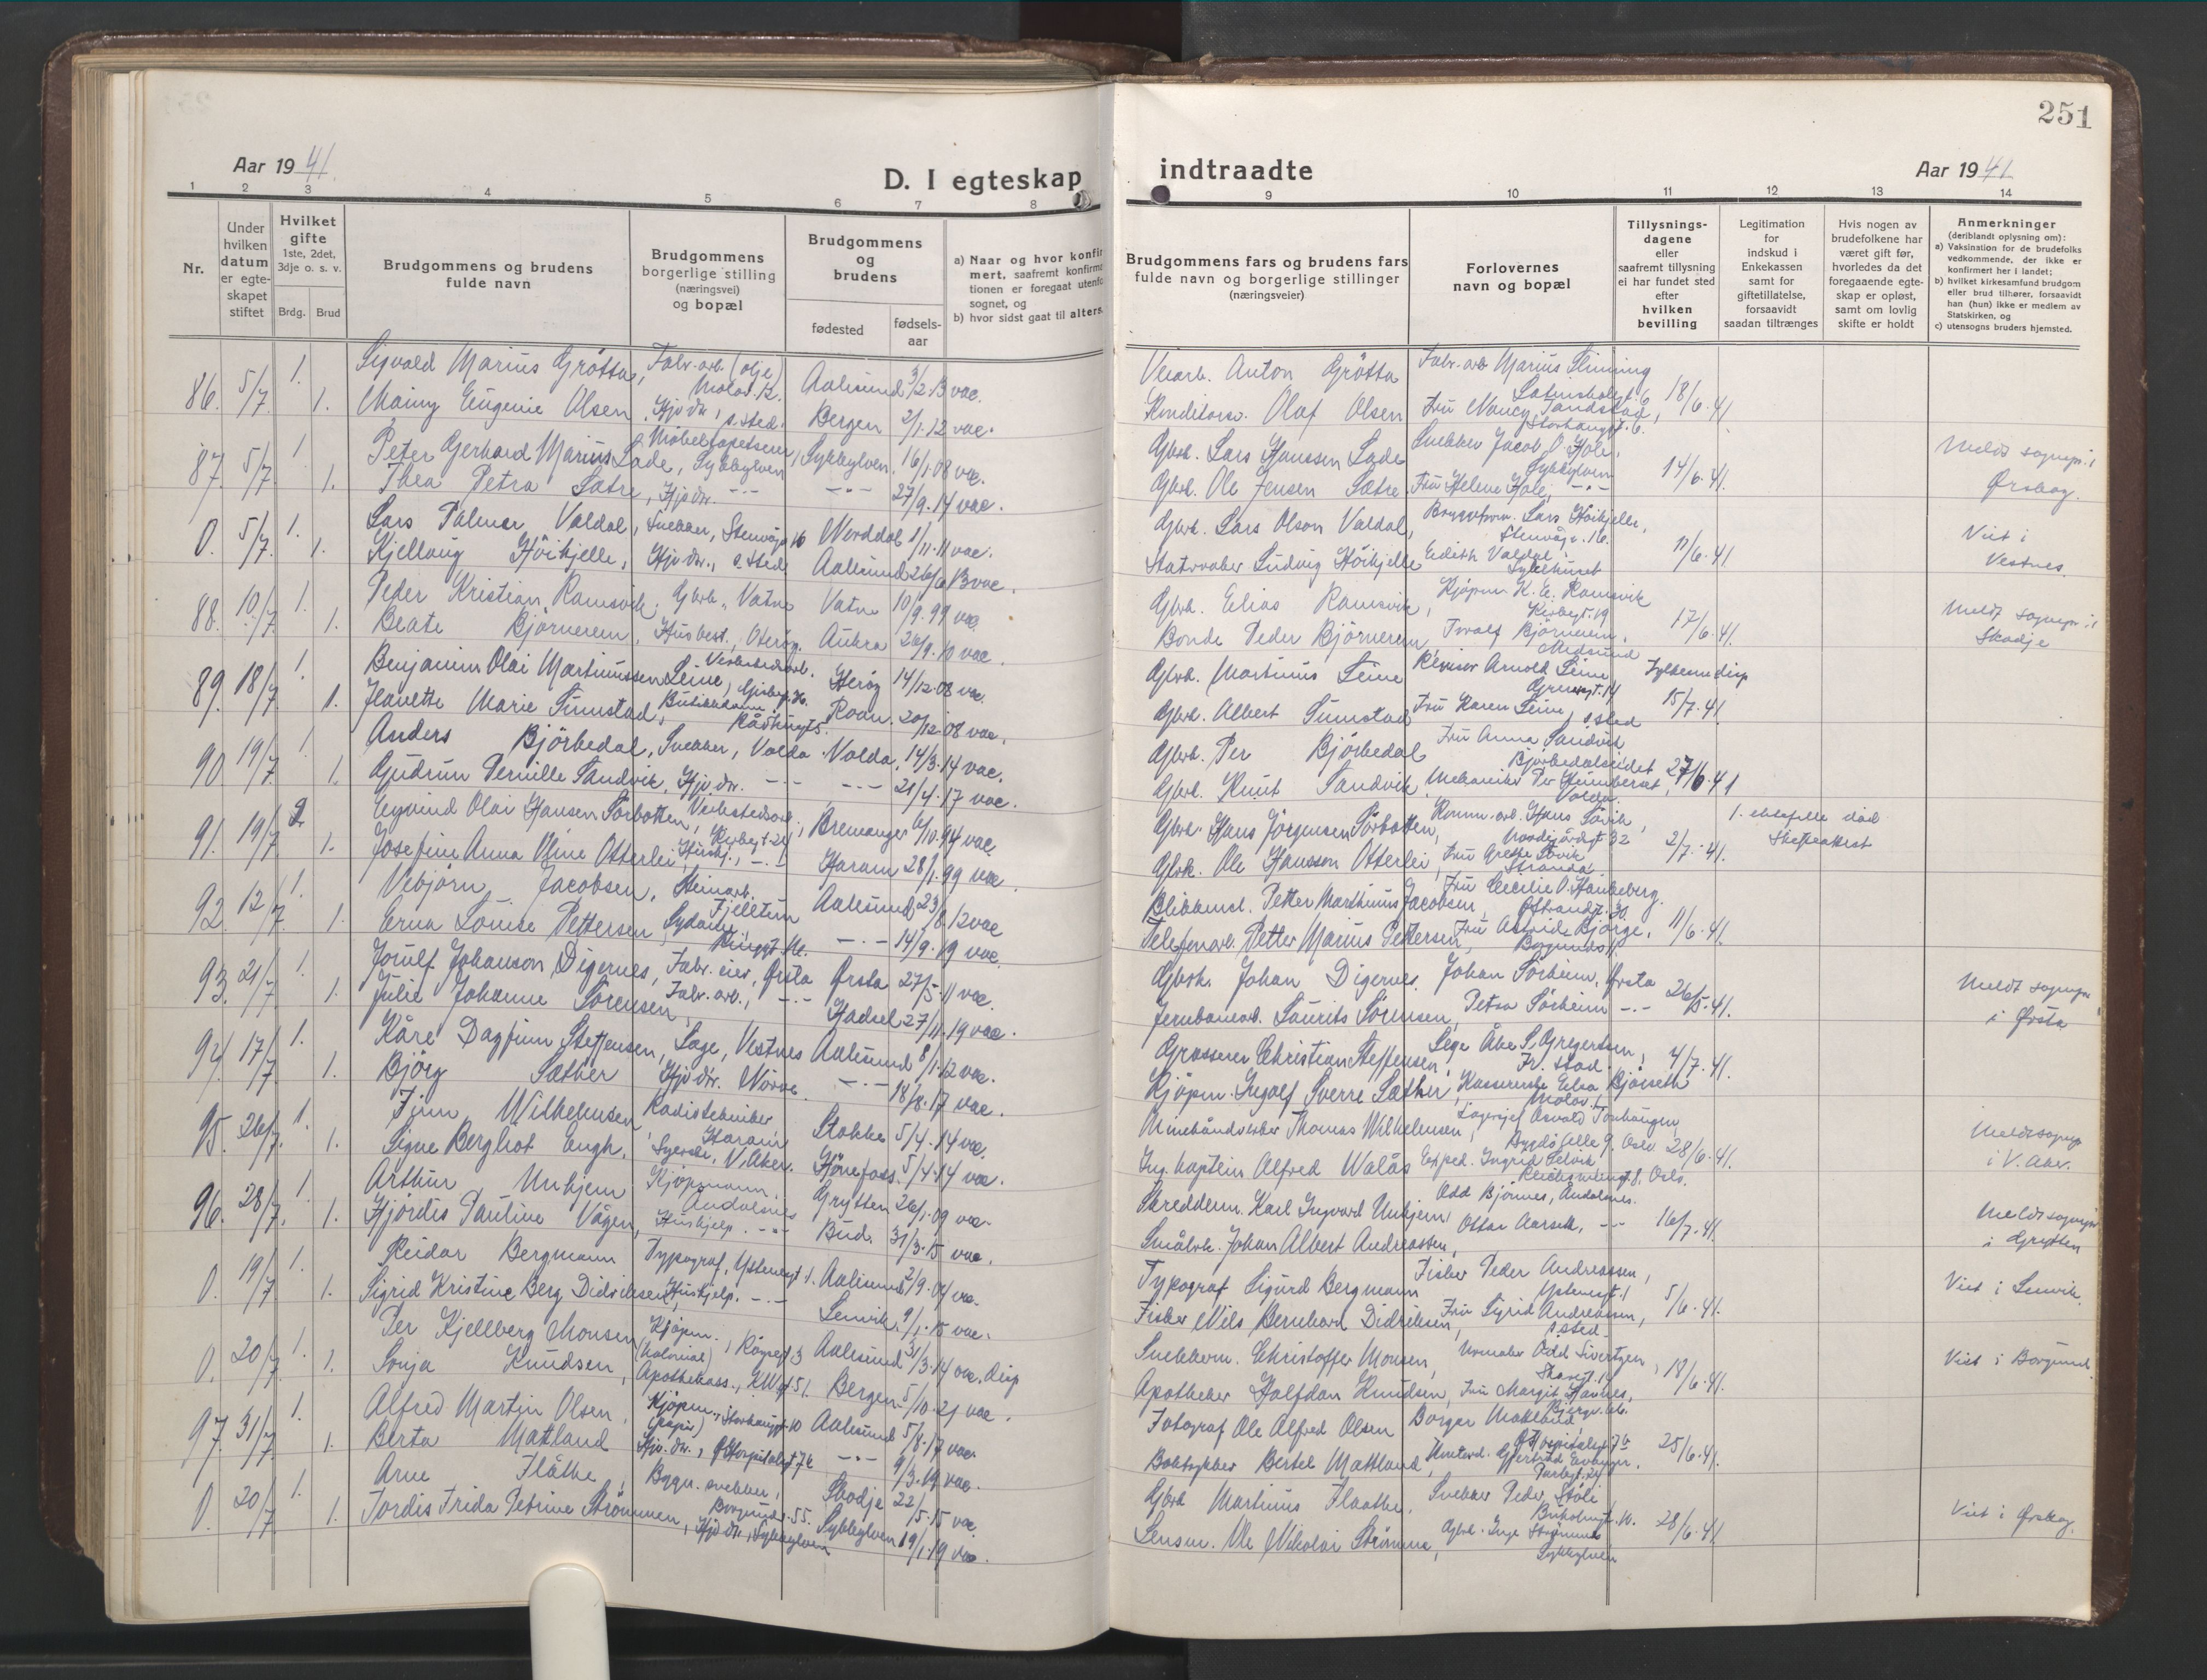 251
Aar 1941.
D. I egteskap
indtraadte
Aar 1941
1 2 3 4 5 6 7 8 9 10 11 12 13 14
Nr.
Under hvilken datum er egte-skapet stiftet
Hvilket gifte 1ste, 2det, 3dje o. s. v.
Brdg. Brud
Brudgommens og brudens fulde navn
Brudgommens borgerlige stilling (næringsvei) og bopæl
Brudgommens og brudens
fødested fødsels-aar
a) Naar og hvor konfir
mert, saafremt konfirma
tionen er foregaat utenfo
sognet, og
b) hvor sidst gaat til alters.
Brudgommens fars og brudens fars
fulde navn og borgerlige stillinger
(næringsveier)
Forlovernes navn og bopæl
Tillysnings-dagene eller saafremt tillysning ei har fundet sted efter hvilken bevilling
Legitimation for indskud i Enkekassen samt for giftetillatelse, forsaavidt saadan tiltrænges
Hvis nogen av brudefolkene har været gift før, hvorledes da det foregaaende egte-skap er opløst, samt om lovlig skifte er holdt
Anmerkninger
(deriblandt oplysning om):
a) Vaksination for de brudefolks vedkommende, der ikke er konfirmert her i landet;
b) hvilket kirkesamfund brudgom eller brud tilhører, forsaavidt han (hun) ikke er medlem av Statskirken, og
c) utensogns bruders hjemsted.
86. 5/7 1. Sigvald Marius Grötta, Fabr.arb. (olje) Molov. 12. Aalesund 3/2.13 vac. Anton Grötta Fabr.arb Marius Slinning
1. Mainy Eugenie Olsen, Hjv.dr., s.sted. Bergen 2/1.12 vac. Konditorsv. Olaf Olsen Fru Nancy Tandstad, Storhaugt. 6. 18/6.41
87. 5/7 1 Peter Gerhard Marius Lade, Möbeltapetserer, Sykkylven, Sykkylven. 16/1.08 vac. Gbrk. Lars Hanssen Lade Snekker Jacob O. Hole, Sykkylven Meldt sognepr. i
1. Thea Petra Sætre, Hjv.dr. -"- -"- 27/9.14 vac. Gbrk. Ole Jensen Sætre Fru Helene Hole, -"- 14/6.41. Ørskog.
0. 5/7. 1. Lars Palmer Valdal, Snekker, Stenvågn 16 Norddal 1/11.11 vac. Gbrk. Lars Olson Valdal, Lars Höikjelle, Stenvågn. 16. Viet i
1. Kjellaug Höikjelle, Hjv.dr., s.sted. Aalesund 26/6 13 vac. Ludvig Höikjelle Edith Valdal, Sykehuset 11/6.41 Vestnes.
88. 10/7. 1. Peder Kristian Ramsvik, Gbrk., Vatne Vatne 10/9.99 vac. Gbrk. Elias Ramsvik, Kjøpm. K. E. Ramsvik Kirkegt. 19 Meldt sognepr. i
1. Beate Björnerem, Husbest., Oteröy. Aukra 26/9.10 vac. Bonde Peder Björnerem, Björnerem, Midsund 17/6.41. Skodje
89. 18/7 1. Benjamin Olai Martinussen Leine, Verkstedarb. Heröy 14/12.08 vac. Gbrk. Martinus Leine Revisor Arnold Leine Fylkesm. disp
1. Jeanette Marie Sunnstad, Butikkdame, Rådhusgt 5. Roan. 20/12.08 vac. Gbrk. Albert Sunnstad Fru Karen Leine, s.sted 15/7.41
90. 19/7 1 Anders Björkedal, Snekker, Volda. Volda. 14/3.14 vac. Gbrk. Per Björkedal Fru Anna Sandvik Björkedalseidet
1. Gudrun Pernille Sandvik, Hjv.dr. -"- -"- 21/4.17 vac. Gbrk. Knut Sandvik, Mekaniker Per Volda. 27/6.41
91. 19/7 2. Eyvind Olai Hansen Sörbotten, Verkstedsarb., Kirkegt 21, Bremanger 6/10.94 vac Gbrk. Hans Jörgensen Sörbotten, Komm.arb. Hans Lövik, 1. ektefelle död
1. Josefine Anna Oline Otterlei, Hushj., -"- Haram 28/1.99 vac. Gbrk. Ole Hansson Otterlei, Fru Grethe Lövik Stranda 2/7.41. Skifteattest
92. 12/7. 1. Vebjörn Jacobsen, Steinarb. Fjelltun Aalesund 23/8.12 vac Blikkensl. Petter Marthinus Jacobsen, Fru Cecilie O. Haukeberg. Östrandg. 30.
1. Erna Louise Pettersen, Sydame, -"- 14/9.19 vac. Telefonarb. Petter Marius Pettersen, Fru Astrid Bjørge, 11/6.41.
93. 21/7 1. Jorulf Johanson Digernes, Fabr.eier, Ørsta Ørsta 27/5.11 vac. Gbrk. Johan Digernes. Johan Sörheim, Ørsta Meldt sognepr
1. Julie Johanne Sörensen, Fabr.arb., -"- Hadsel 27/11.19 vac. Jernbanearb. Laurits Sörensen, Petra Sörheim -"- 26/5.41. i Ørsta
94. 17/7 1. Kåre Dagfinn Steffensen, Læge, Vestnes Aalesund 8/1.12 vac. Grosserer Christian Steffensen, Læge Åke S. Gregertsen, Fr.stad.
1. Björg Sæther Hjv.dr. Nörve. -"- 18/8.17 vac. Kjöpm. Ingolf Sverre Sæther, Kassererske Björseth 4/7.41.
95. 26/7. 1. Finn Wilhelmsen Radiotekniker, Haram Stokke 5/4.14 vac. Minehåndverker Thomas Wilhelmsen, Lagersjef Osvald Tonhaugen Bygdö Alle 9. Oslo Meldt sognepr
1. Signe Berghot Engh, Syerske, V. Aker. Hönefoss 5/4.14 vac. Ing. kaptein Alfred Walås Exped. Ingrid 28/6.41. i V. Aker.
96. 28/7. 1. Arthur Unhjem Kjöpmann. Andalsnes Grytten 26/1.09 vac. Skredderm. Karl Ingvard Unhjem, Odd Björnes, Andalsnes. Meldt sognepr
1. Hjördis Pauline Vågen, Hushjelp. -"- Bud. 31/3.15 vac. Johan Albert Andreassen, Ottar Aarseth, -"- 16/7.41 i Grytten
0. 19/7 1. Reidar Bergmann Typograf, Ystenesgt 1. Aalesund 2/9.04 vac. Typograf Sigurd Bergmann Fisker Peder Andreassen, Ystenesgt. 1
1. Sigrid Kristine Berg Didriksen, Hushjelp. -"- Lenvik. 9/1.15 vac. Fisker Nils Bernhard Didriksen, Fru Sigrid Andreassen, s.sted. 5/6.41. Viet i Lenvik.
0. 20/7 1. Per Kjellberg Monsen Kjöpm. (kolonial), Röysegt 3 Aalesund 31/3.14 vac. disp Snekkerm. Christoffer Monsen, Urmaker Odd Sivertsen, Viet i Borgund.
1. Sonja Knudsen, Apothekass., K.W.gt 51. Bergen. 5/10.21 vac. Apotheker Halfdan Knudsen, Fru Margit Havnes, 18/6.41.
97. 31/7 1. Alfred Martin Olsen, Kjöpm., (papir) Storhaugt. 10 Aalesund 5/8.17 vac. Fotograf Ole Alfred Olsen Borger Mattland,
1. Berta Mattland Hjv.dr., Ø. Hospitalsgt 7b -"- 9/3.19 vac. Boktrykker Bertel Mattland, 25/6.41.
0. 20/7 1. Arne Flåthe, Bygn.snekker, Borgundv. 55. Skodje 22/5.15 vac. Gbrk Martinus Flaathe, Snekker Peder Støle
1. Tordis Frida Petrine Strömmen, Hjv.dr., Sykkylven Sykkylven 19/1.19 vac. Lensm. Ole Nikolai Strömme, Gbrk. Inge Strömme Sykkylven 28/6.41. Viet i Ørskog.